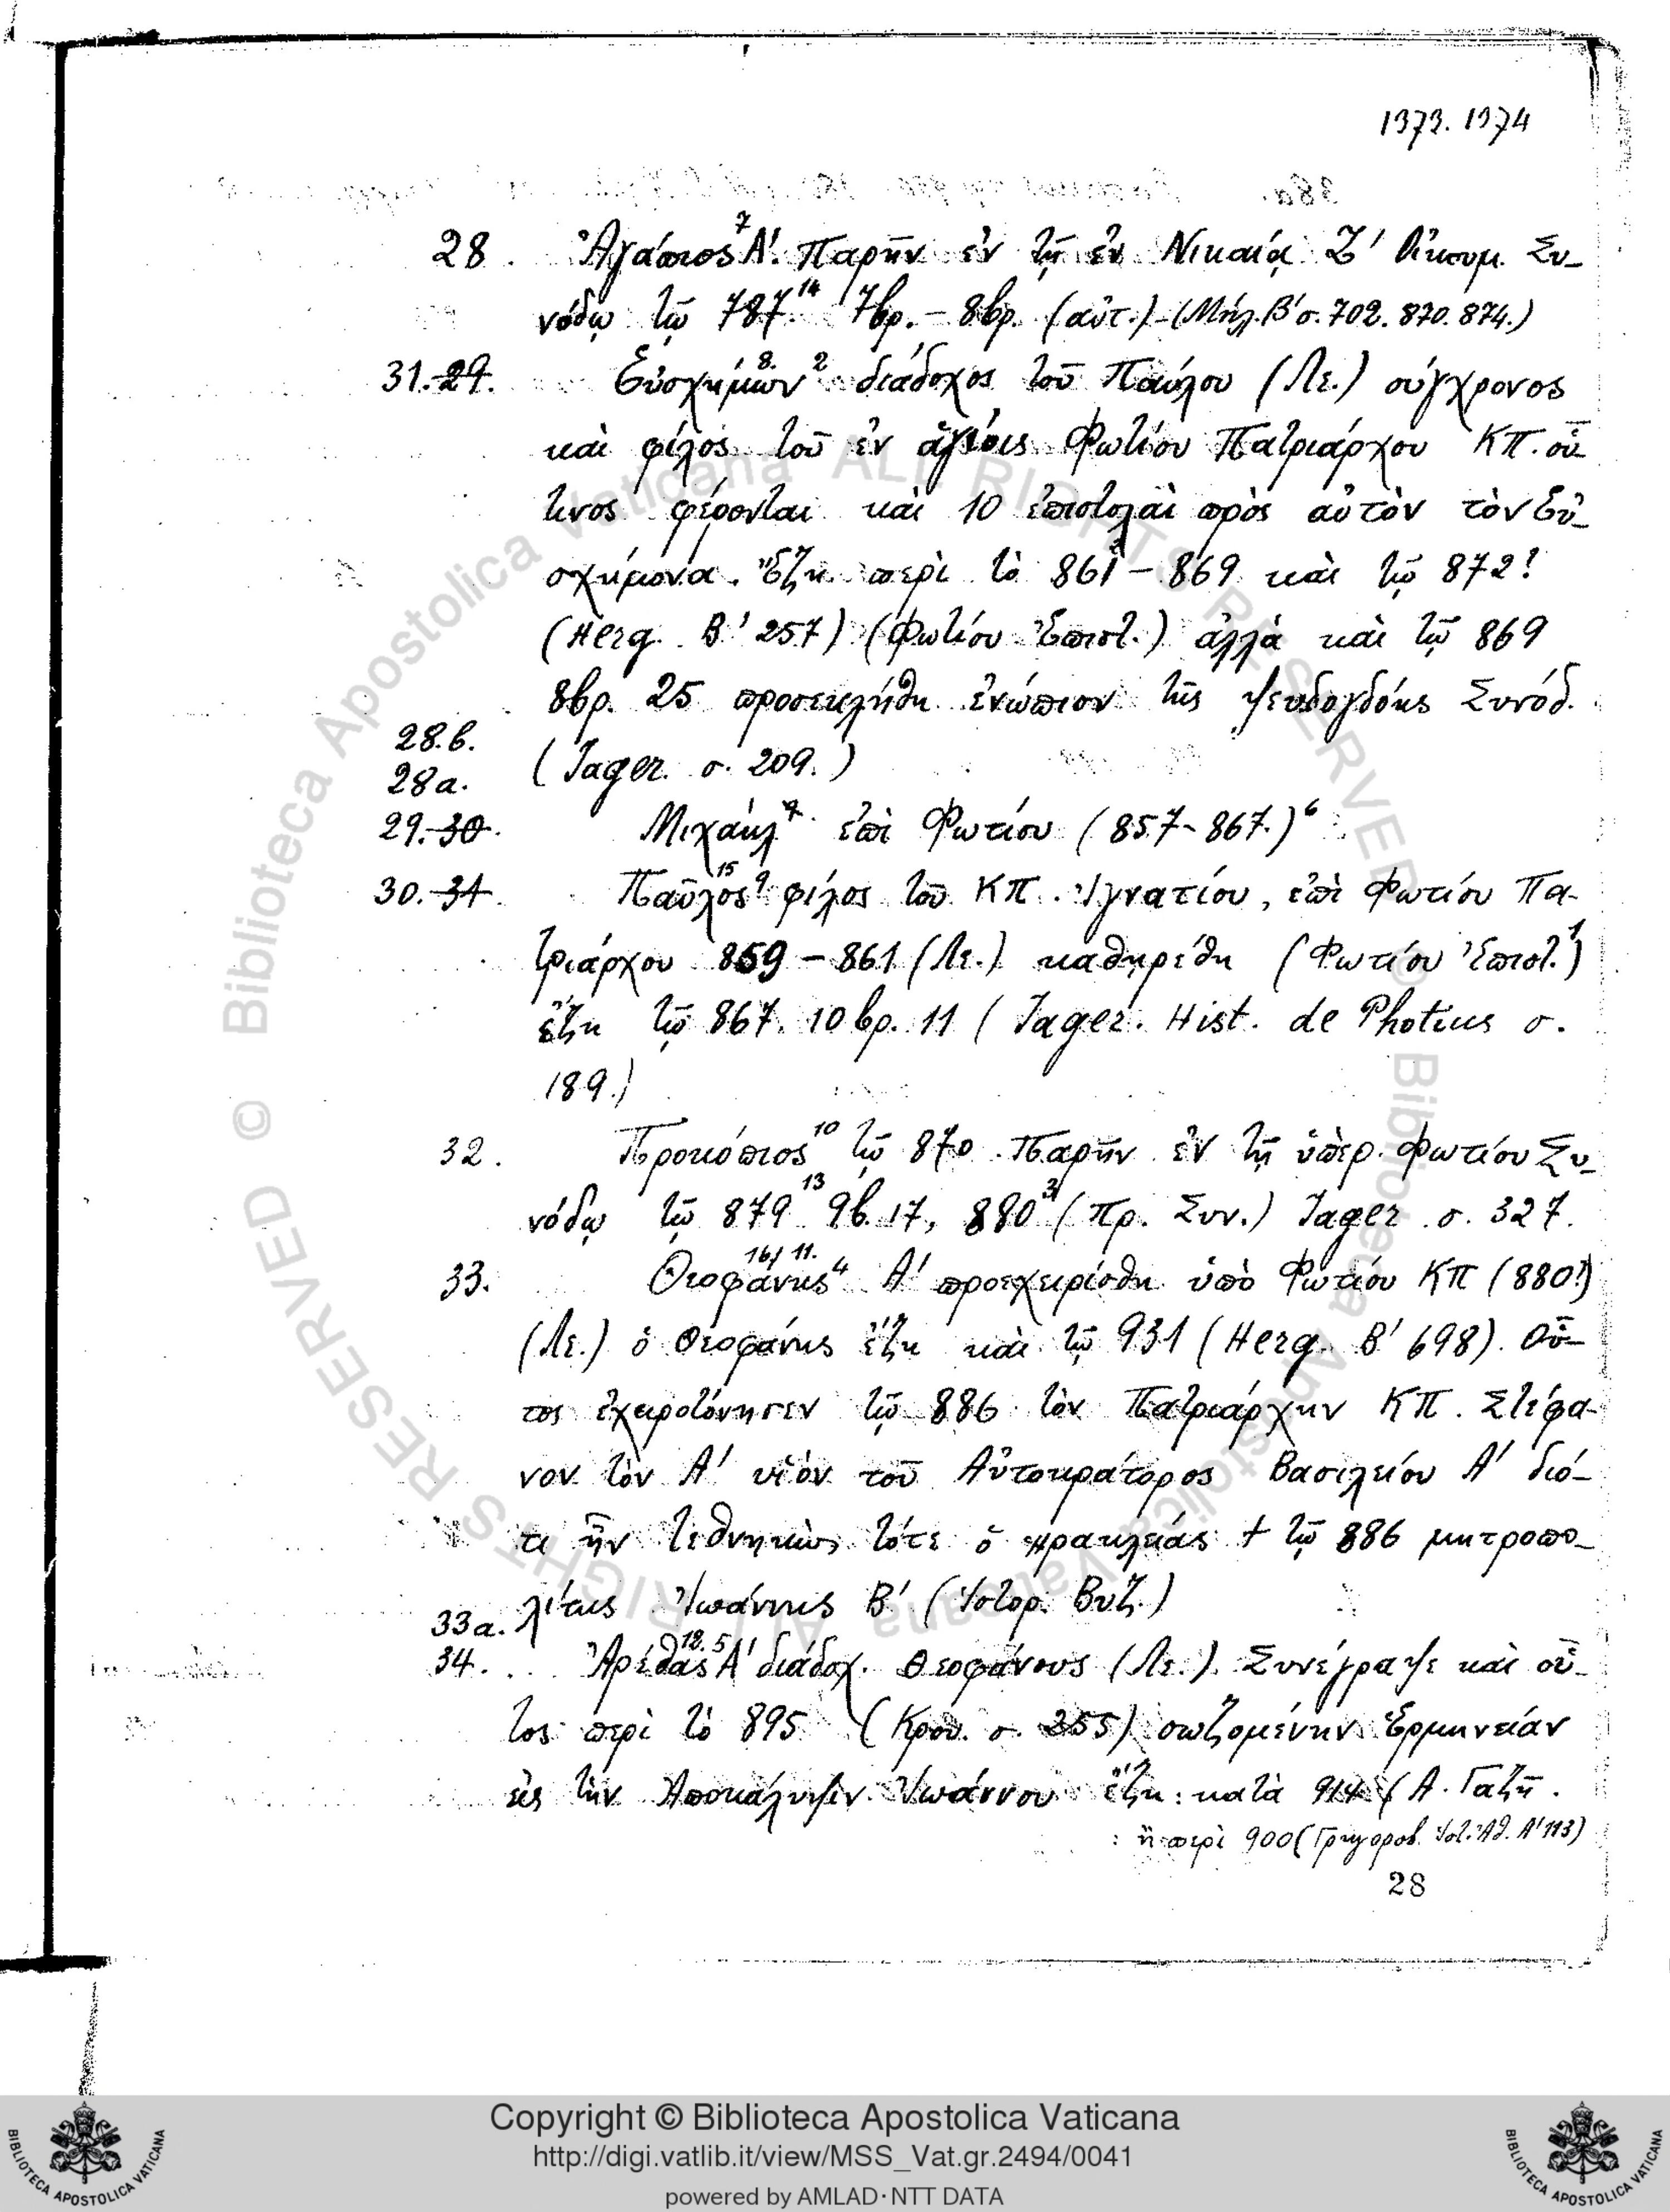 1373. 1374
28. Ἀγάπιος⁷ Α΄. Παρῆν ἐν τῇ ἐν Νικαίᾳ Ζ΄ Οἰκουμ. Συ-
νόδῳ τῷ 787¹⁴ 7βρ. – 8βρ. (αὐτ.) – (Μήλ. Β΄ σ. 702. 870. 874.)
31. 29. Εὐσχήμων⁸·² διάδοχος τοῦ Παύλου (Λε.) σύγχρονος
καὶ φίλος τοῦ ἐν ἁγίοις Φωτίου Πατριάρχου ΚΠ. οὗ-
τινος φέρονται καὶ 10 ἐπιστολαὶ πρὸς αὐτὸν τὸν Εὐ-
σχήμονα. Ἔζη περὶ τὸ 861 – 869 καὶ τῷ 872!
(Herg. Β΄ 257) (Φωτίου Ἐπιστ.) ἀλλὰ καὶ τῷ 869
8βρ. 25 προσεκλήθη ἐνώπιον τῆς ψευδογδόης Συνόδ.
28.β.
(Jager. σ. 209.)
28α.
29. 30. Μιχαὴλ⁷ ἐπὶ Φωτίου (857 – 867.)⁶
30. 31. Παῦλος¹⁵·⁹ φίλος τοῦ ΚΠ. Ἰγνατίου, ἐπὶ Φωτίου Πα-
τριάρχου 859 – 861 (Λε.) καθῃρέθη (Φωτίου Ἐπιστ.¹)
ἔζη τῷ 867. 10βρ. 11 (Jager. Hist. de Photius σ.
189.)
32. Προκόπιος¹⁰ τῷ 870 Παρῆν ἐν τῇ ὑπὲρ Φωτίου Συ-
νόδῳ τῷ 879¹³ 9β. 17, 880³ (Πρ. Συν.) Jager σ. 327.
33. Θεοφάνης¹⁶/¹¹·⁴ Α΄ προεχειρίσθη ὑπὸ Φωτίου ΚΠ (880!)
(Λε.) ὁ Θεοφάνης ἔζη καὶ τῷ 931 (Herg. Β΄ 698). Οὗ-
τος ἐχειροτόνησεν τῷ 886 τὸν Πατριάρχην ΚΠ. Στέφα-
νον τὸν Α΄ υἱὸν τοῦ Αὐτοκράτορος Βασιλείου Α΄ διό-
τι ἦν τεθνηκὼς τότε ὁ Ἡρακλείας + τῷ 886 μητροπο-
λίτης Ἰωάννης Β΄ (Ἱστορ. Βυζ.)
33α.
34. Ἀρέθας¹²·⁵ Α΄ διάδοχ. Θεοφάνους (Λε.) Συνέγραψε καὶ οὗ-
τος περὶ τὸ 895 (Κρου. σ. 255) σωζομένην Ἑρμηνείαν
εἰς τὴν Ἀποκάλυψιν Ἰωάννου ἔζη κατὰ 914 (Α. Γαζῆ.
ἢ περὶ 900 (Γρηγοροβ. Ἱστ. Ἀθ. Α΄ 113)
28
Copyright © Biblioteca Apostolica Vaticana
http://digi.vatlib.it/view/MSS_Vat.gr.2494/0041
powered by AMLAD · NTT DATA
BIBLIOTECA APOSTOLICA VATICANA
BIBLIOTECA APOSTOLICA VATICANA
© Biblioteca Apostolica Vaticana ALL RIGHTS RESERVED
© Biblioteca Apostolica Vaticana ALL RIGHTS RESERVED